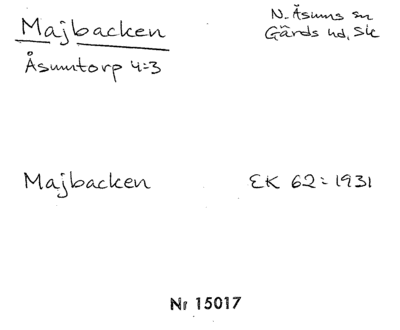 Majbacken
N. Åsums sn
Gärds hd, Sk
Åsumtorp 4:3
Majbacken
EK 62:1931
Nr 15017